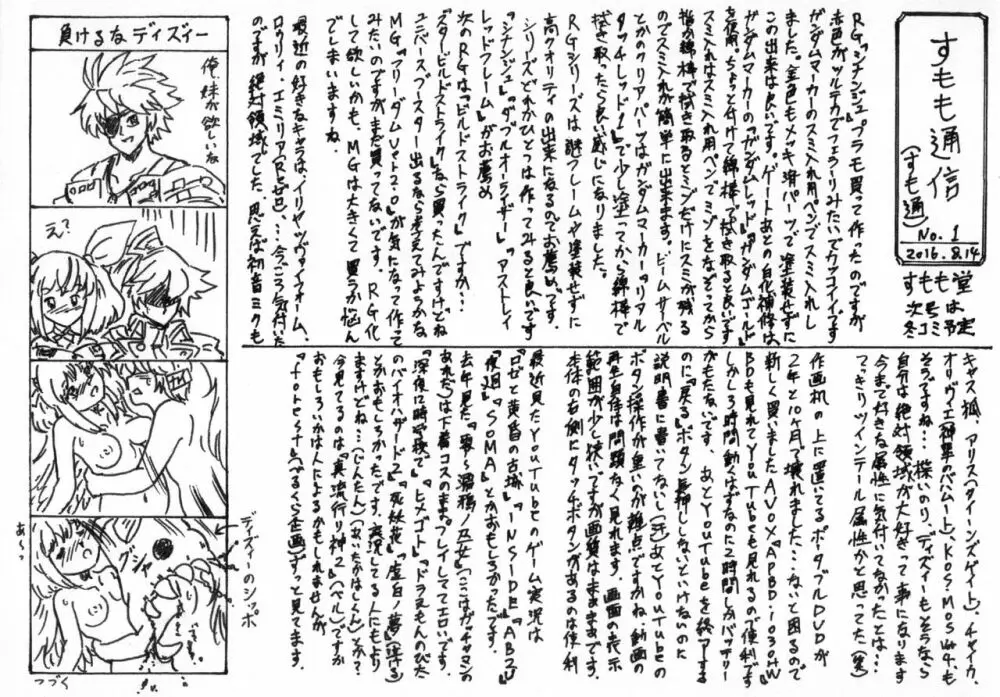 すもも通信
(すも通)
No.1
2016.8.14
すもも堂
次号は
冬コミ予定
RG『シナンジュ』プラモ買って作ったのですが
赤色がツルテカでフェラーリみたいでカッコイイです
ガンダムマーカーのスミ入れ用ペンでスミ入れし
ました。金色もメッキ済パーツで塗装せずに
この出来は良いです。ゲートあとの白化補修は
ガンダムマーカーの『ガンダムレッド』『ガンダムゴールド』
を使用。ちょっと付けて綿棒で拭き取ると良いです
スミ入れはスミ入れ用ペンでミゾをなぞってから
指か綿棒で拭き取るとミゾだけにスミが残る
のでスミ入れが簡単に出来ます。ビームサーベル
とかのクリアパーツはガンダムマーカー『リアル
タッチレッド1』で少し塗ってから綿棒で
拭き取ったら良い感じになりました。
RGシリーズは謎フレームや塗装せずに
高クオリティの出来になるのでお薦めです。
シリーズどれかひとつは作ってみると良いです
『シナンジュ』『ダブルオーライザー』『アストレイ
レッドフレーム』がお薦め
次のRGは『ビルドストライク』ですか…
『スタービルドストライク』なら買ったんですけどね
ユニバースブースター出るなら考えてみようかな
MG『フリーダムVer2.0』が気になって作って
みたいのですがまだ買ってないです。RG化
して欲しいかも、MGは大きくて買うか悩ん
でしまいますね。
最近の好きなキャラは、イリヤ、ツヴァイフォーム、
ロウリィ、エミリア(Re:ゼロ)、…今ごろ気付いた
のですが絶対領域でした。思えば初音ミクも
キャス狐、アリス(クイーンズゲイト)、チャイカ、
オリヴィエ(神撃のバハムート)、KOS-MOS Ver4、も
そうですね…探いのり、ディズィーもそうなら
自分は絶対領域が大好きって事になります
今まで好きな属性に気付いてなかったとは…
てっきりツインテール属性かと思ってた(笑)
作画机の上に置いてるポータブルDVDが
2年と10ヶ月で壊れました…ないと困るので
新しく買いました AVOX『APBD-1030HW』
BDも見れてYouTubeも見れるので便利です
しかし3時間動くはずなのに2時間しかバッテリー
がもたないです。あとYouTubeを終了する
のに『戻る』ボタン長押ししないといけないのに
説明書に書いてないし(汗)あとYouTubeの
ボタン操作が重いのが難点ですかね動画の
再生自体は問題なく見れます。画面の表示
範囲が少し狭いですが画質はまあまあです。
本体の右側にタッチボタンがあるのは便利
最近見たYouTubeのゲーム実況は
『ロゼと黄昏の古城』『INSIDE』『ABZU』
『夜廻』『SOMA』とかおもしろかったです。
去年見た『零～濡鴉ノ巫女』(ここはガッチャマンの
あれだ)は下着コスのままプレイしててエロいです。
『深夜に時空検で』『ヒメゴト』『ドラえもんのびた
のバイオハザード2』『死妖花』『虚白ノ夢』(遅する)
とかおもしろかったです。実況してる人にもより
ますけどね…(じんたん)(あったかはしくん)とか?
今見てるのは『真流行り神2』(ベル)ですか
おもしろいかは人によるかもしれませんが
『forest』(べるくら企画)ずっと見てます。
負けるなディズィー
俺、妹が欲しいな
え?
グシャ
あ～っ
ディズィーのシッポ
つづく